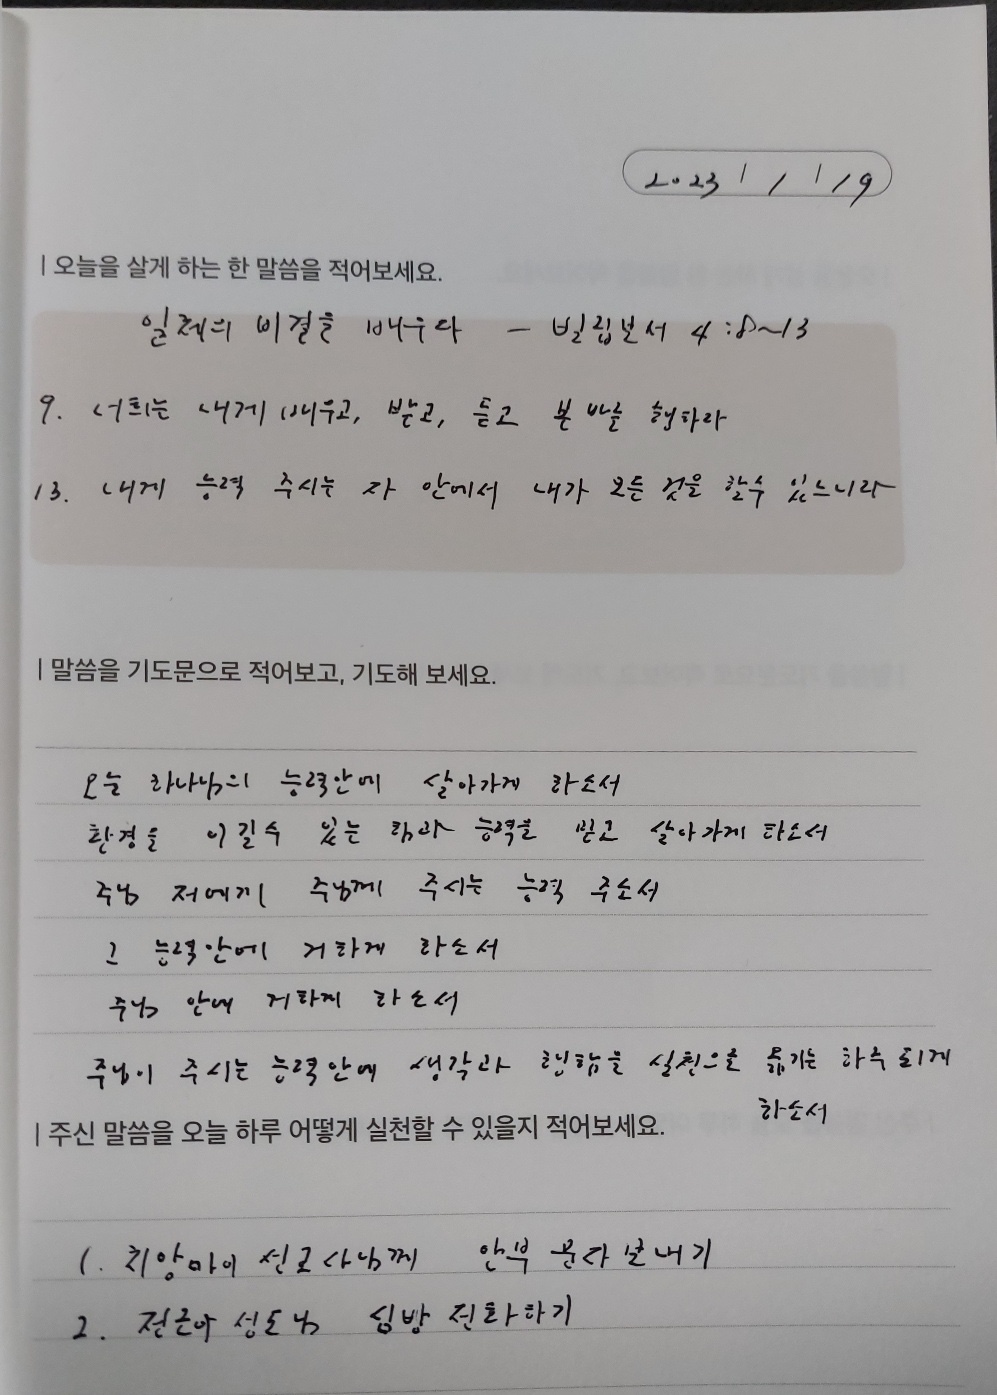 2023 1 / 1 / 9
| 오늘을 살게 하는 한 말씀을 적어보세요.
일체의 비결을 배우다 - 빌립보서 4:8~13
9. 너희는 내게 배우고, 받고, 듣고 본 바를 행하라
13. 내게 능력 주시는 자 안에서 내가 모든 것을 할수 있느니라
| 말씀을 기도문으로 적어보고, 기도해 보세요.
오늘 하나님의 능력안에 살아가게 하소서
환경을 이길수 있는 힘과 능력을 믿고 살아가게 하소서
주님 저에게 주님께 주시는 능력 주소서
그 능력안에 거하게 하소서
주님 안에 거하게 하소서
주님이 주시는 능력안에 생각과 실천으로 옮기는 하루 되게
하소서
| 주신 말씀을 오늘 하루 어떻게 실천할 수 있을지 적어보세요.
1. 치앙마이 선교사님께 안부 문자 보내기
2. 전근아 성도님 심방 전화하기